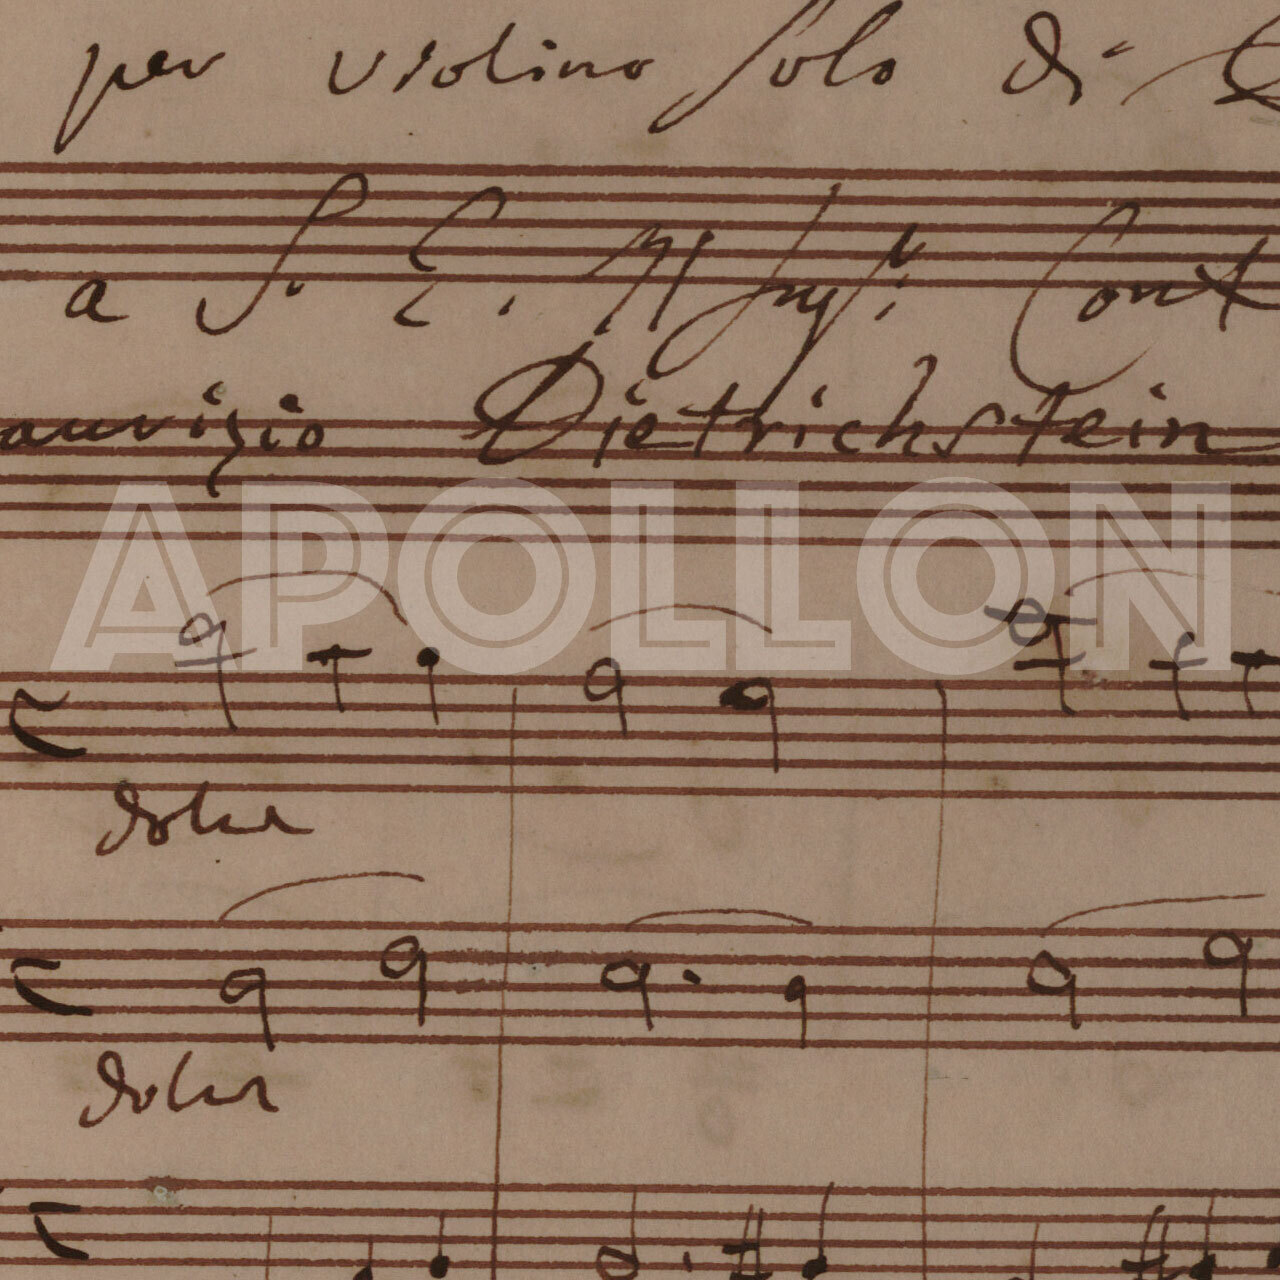 per violino Solo di
a S. E.
aurizio Dietrichstein
APOLLON
dolce
dolce